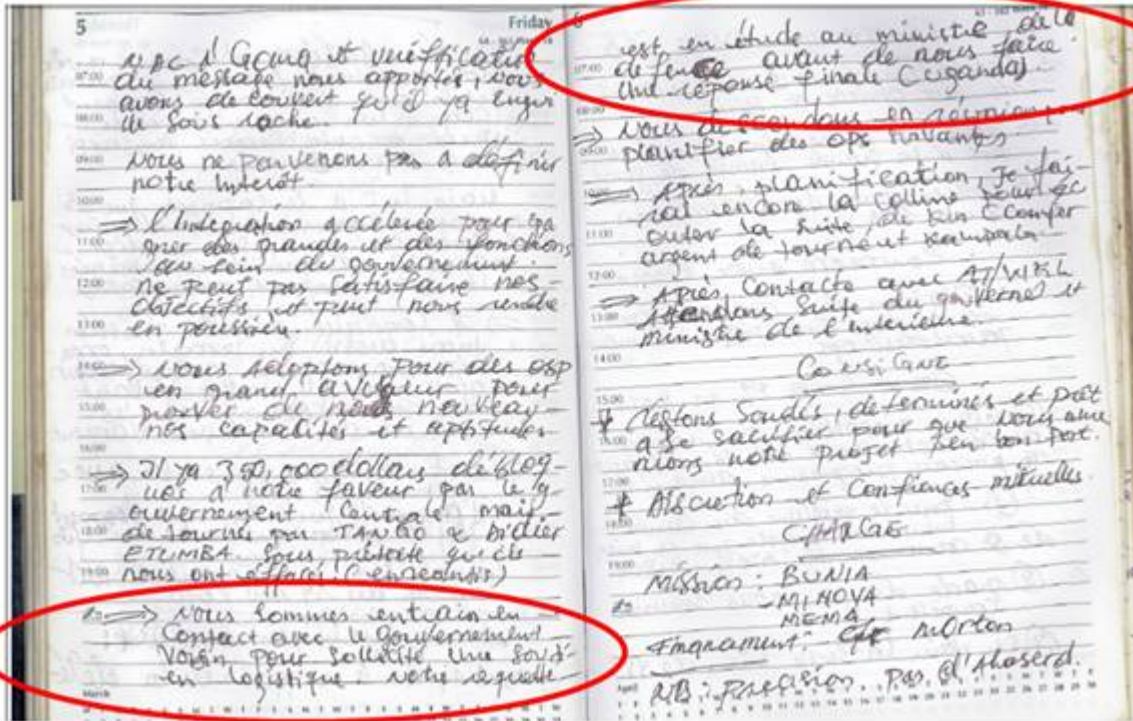 5 Friday
NPC d' Goma et vérification
du message nous apporté, nous
avons decouvert qu'il ya
de sous roche.
nous ne parvenons pas a définir
notre interêt.
⇒ l'intégration accélérée pour ga
gner des grandes et des fonctions
au sein du gouvernement
ne peut pas satisfaire nos
objectifs et peut nous rendre
en poussière.
⇒ nous adoptons pour des osp
en grand pour
prover de nouveau
nos capalités et aptitudes
⇒ Il ya 350,000 dollars déblog-
ués à notre faveur par le g-
ouvernement Centrale mais
detournés par TANGO & Didier
ETUMBA sous prétexte qu'ils
nous ont effacé
⇒ Nous sommes entrain en
Contact avec le gouvernement
voisin pour sollicité une souti-
en logistique. Notre requette
March
6
est en étude au ministre de la
defence avant de nous faire
une réponse finale (Uganda).
⇒ Nous descendons en réunion
planifier des ops suivantes
⇒ Après planification, je fai-
rai encore la colline pour éc
outer la suite de Kin
argent de tournéut Kampala
⇒ Après Contacte avec
Attendons Suite du gouverne et
ministre de l'interieure.
CONSIGNE
Restons Soudés, determinés et
a se sacrifier pour que nous
nions notre projet en bon Port.
Discretion et Confiences mituelles.
CHARGE
Mission : BUNIA
- MINOVA
MEMA
Financement: morton
NB: Precision Pas d'
April